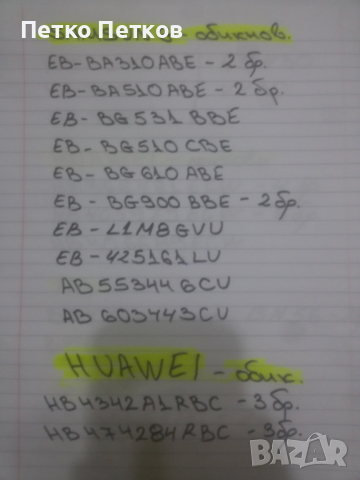 Петко Петков
- обикнов.
EB-BA310ABE - 2 бр.
EB-BA510ABE - 2 бр.
EB-BG531BBE
EB-BG510CBE
EB-BG610ABE
EB-BG900BBE - 2 бр.
EB-L1M8GVU
EB-425161LU
AB553446CU
AB603443CU
HUAWEI - обик.
HB4342A1RBC - 3 бр.
HB474284RBC - 3 бр.
bazar